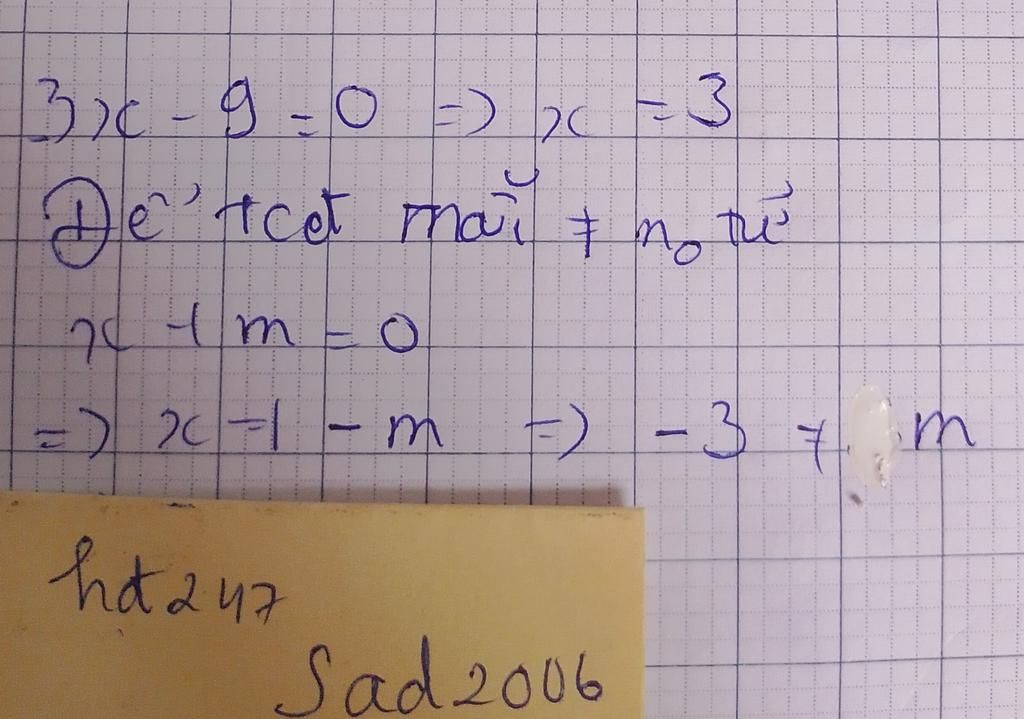 3x - 9 = 0 => x = 3
Để tcđ mãi ≠ n₀ tử
x + m = 0
=> x = - m => - 3 ≠ m
hdt247
Sad2006